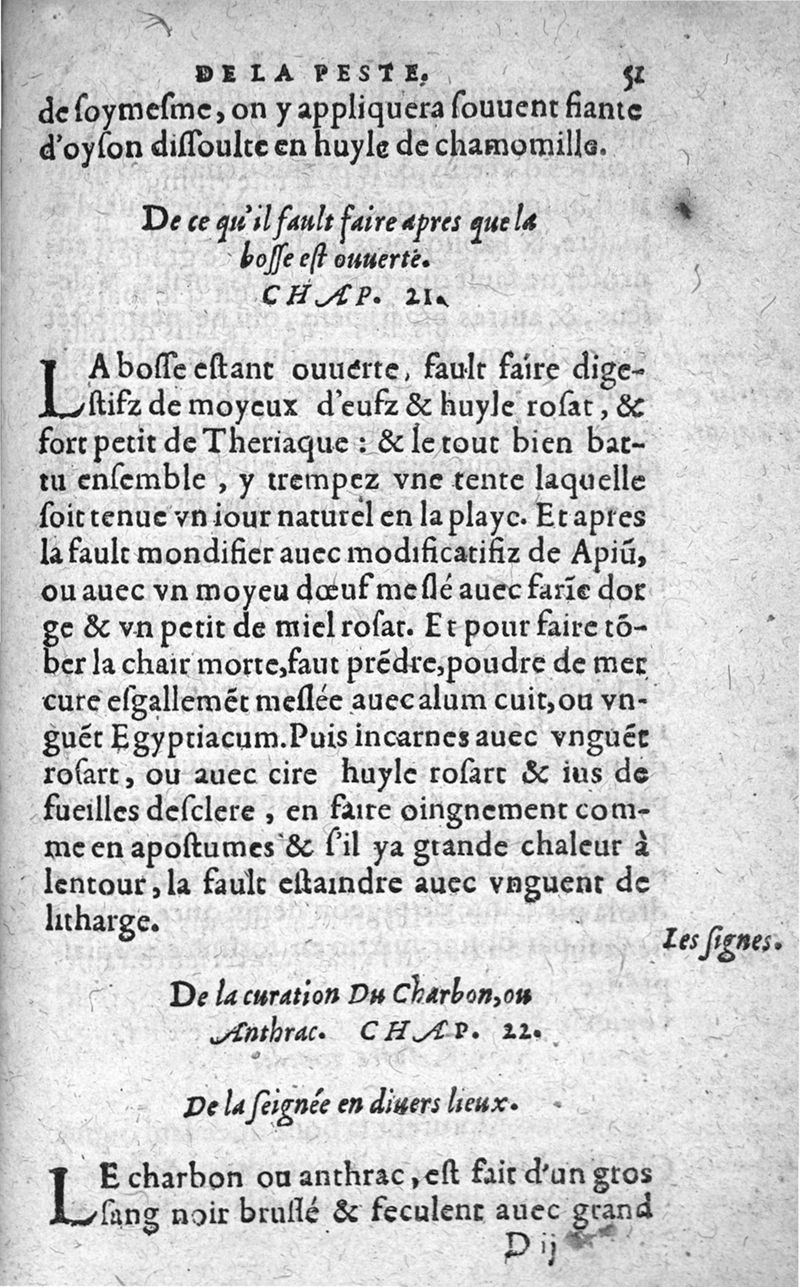 DE LA PESTE. 51
de ſoymeſme, on y appliquera ſouuent fiante
d'oyſon diſſoulte en huyle de chamomille.
De ce qu'il fault faire apres que la
boſſe eſt ouuerte.
CHAP. 21.
LA boſſe eſtant ouuerte, fault faire dige-
ſtifz de moyeux d'eufz & huyle roſat, &
fort petit de Theriaque : & le tout bien bat-
tu enſemble, y trempez vne tente laquelle
ſoit tenue vn iour naturel en la playe. Et apres
la fault mondifier auec modificatifiz de Apiũ,
ou auec vn moyeu dœuf meſlé auec farīe dor
ge & vn petit de miel roſat. Et pour faire tõ-
ber la chair morte, faut prẽdre, poudre de mer
cure eſgallemẽt meſlée auec alum cuit, ou vn-
guẽt Egyptiacum. Puis incarnes auec vnguẽt
roſart, ou auec cire huyle roſart & ius de
fueilles deſclere, en faire oingnement com-
me en apoſtumes & ſ'il ya grande chaleur à
lentour, la fault eſtaindre auec vnguent de
litharge.
Les ſignes.
De la curation Du Charbon, ou
Anthrac. CHAP. 22.
De la ſeignée en diuers lieux.
LE charbon ou anthrac, eſt fait d'un gros
ſang noir bruſlé & feculent auec grand
D ij